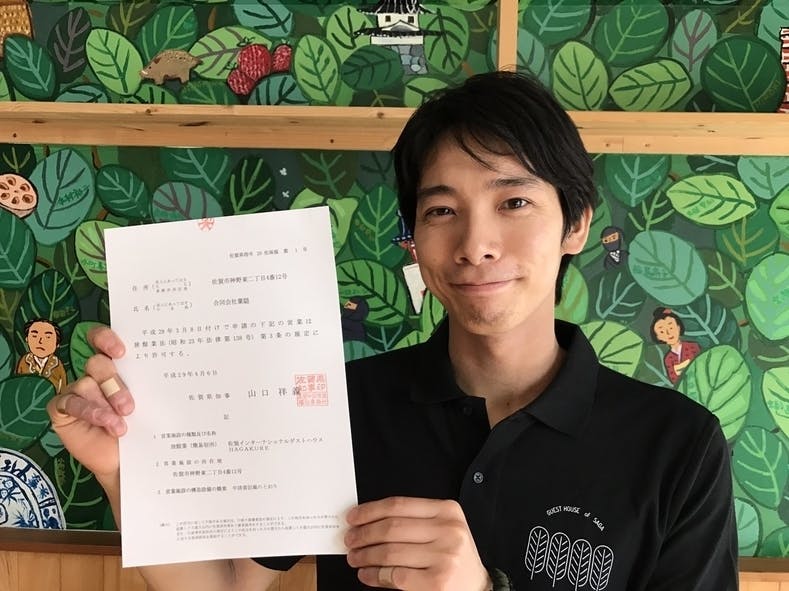 佐賀県指令 29 佐保福 第 1 号
住 所
佐賀市神野東二丁目4番12号
氏 名
合同会社葉隠
平成29年3月8日付けで申請の下記の営業は
旅館業法(昭和23年法律第138号)第3条の規定に
より許可する。
平成29年4月6日
佐賀県知事 山口祥義
記
1 営業施設の種類及び名称
旅館業(簡易宿所) 佐賀インターナショナルゲストハウス
HAGAKURE
2 営業施設の所在地
佐賀市神野東二丁目4番12号
3 営業施設の構造設備の概要 申請書記載のとおり
GUEST HOUSE of SAGA